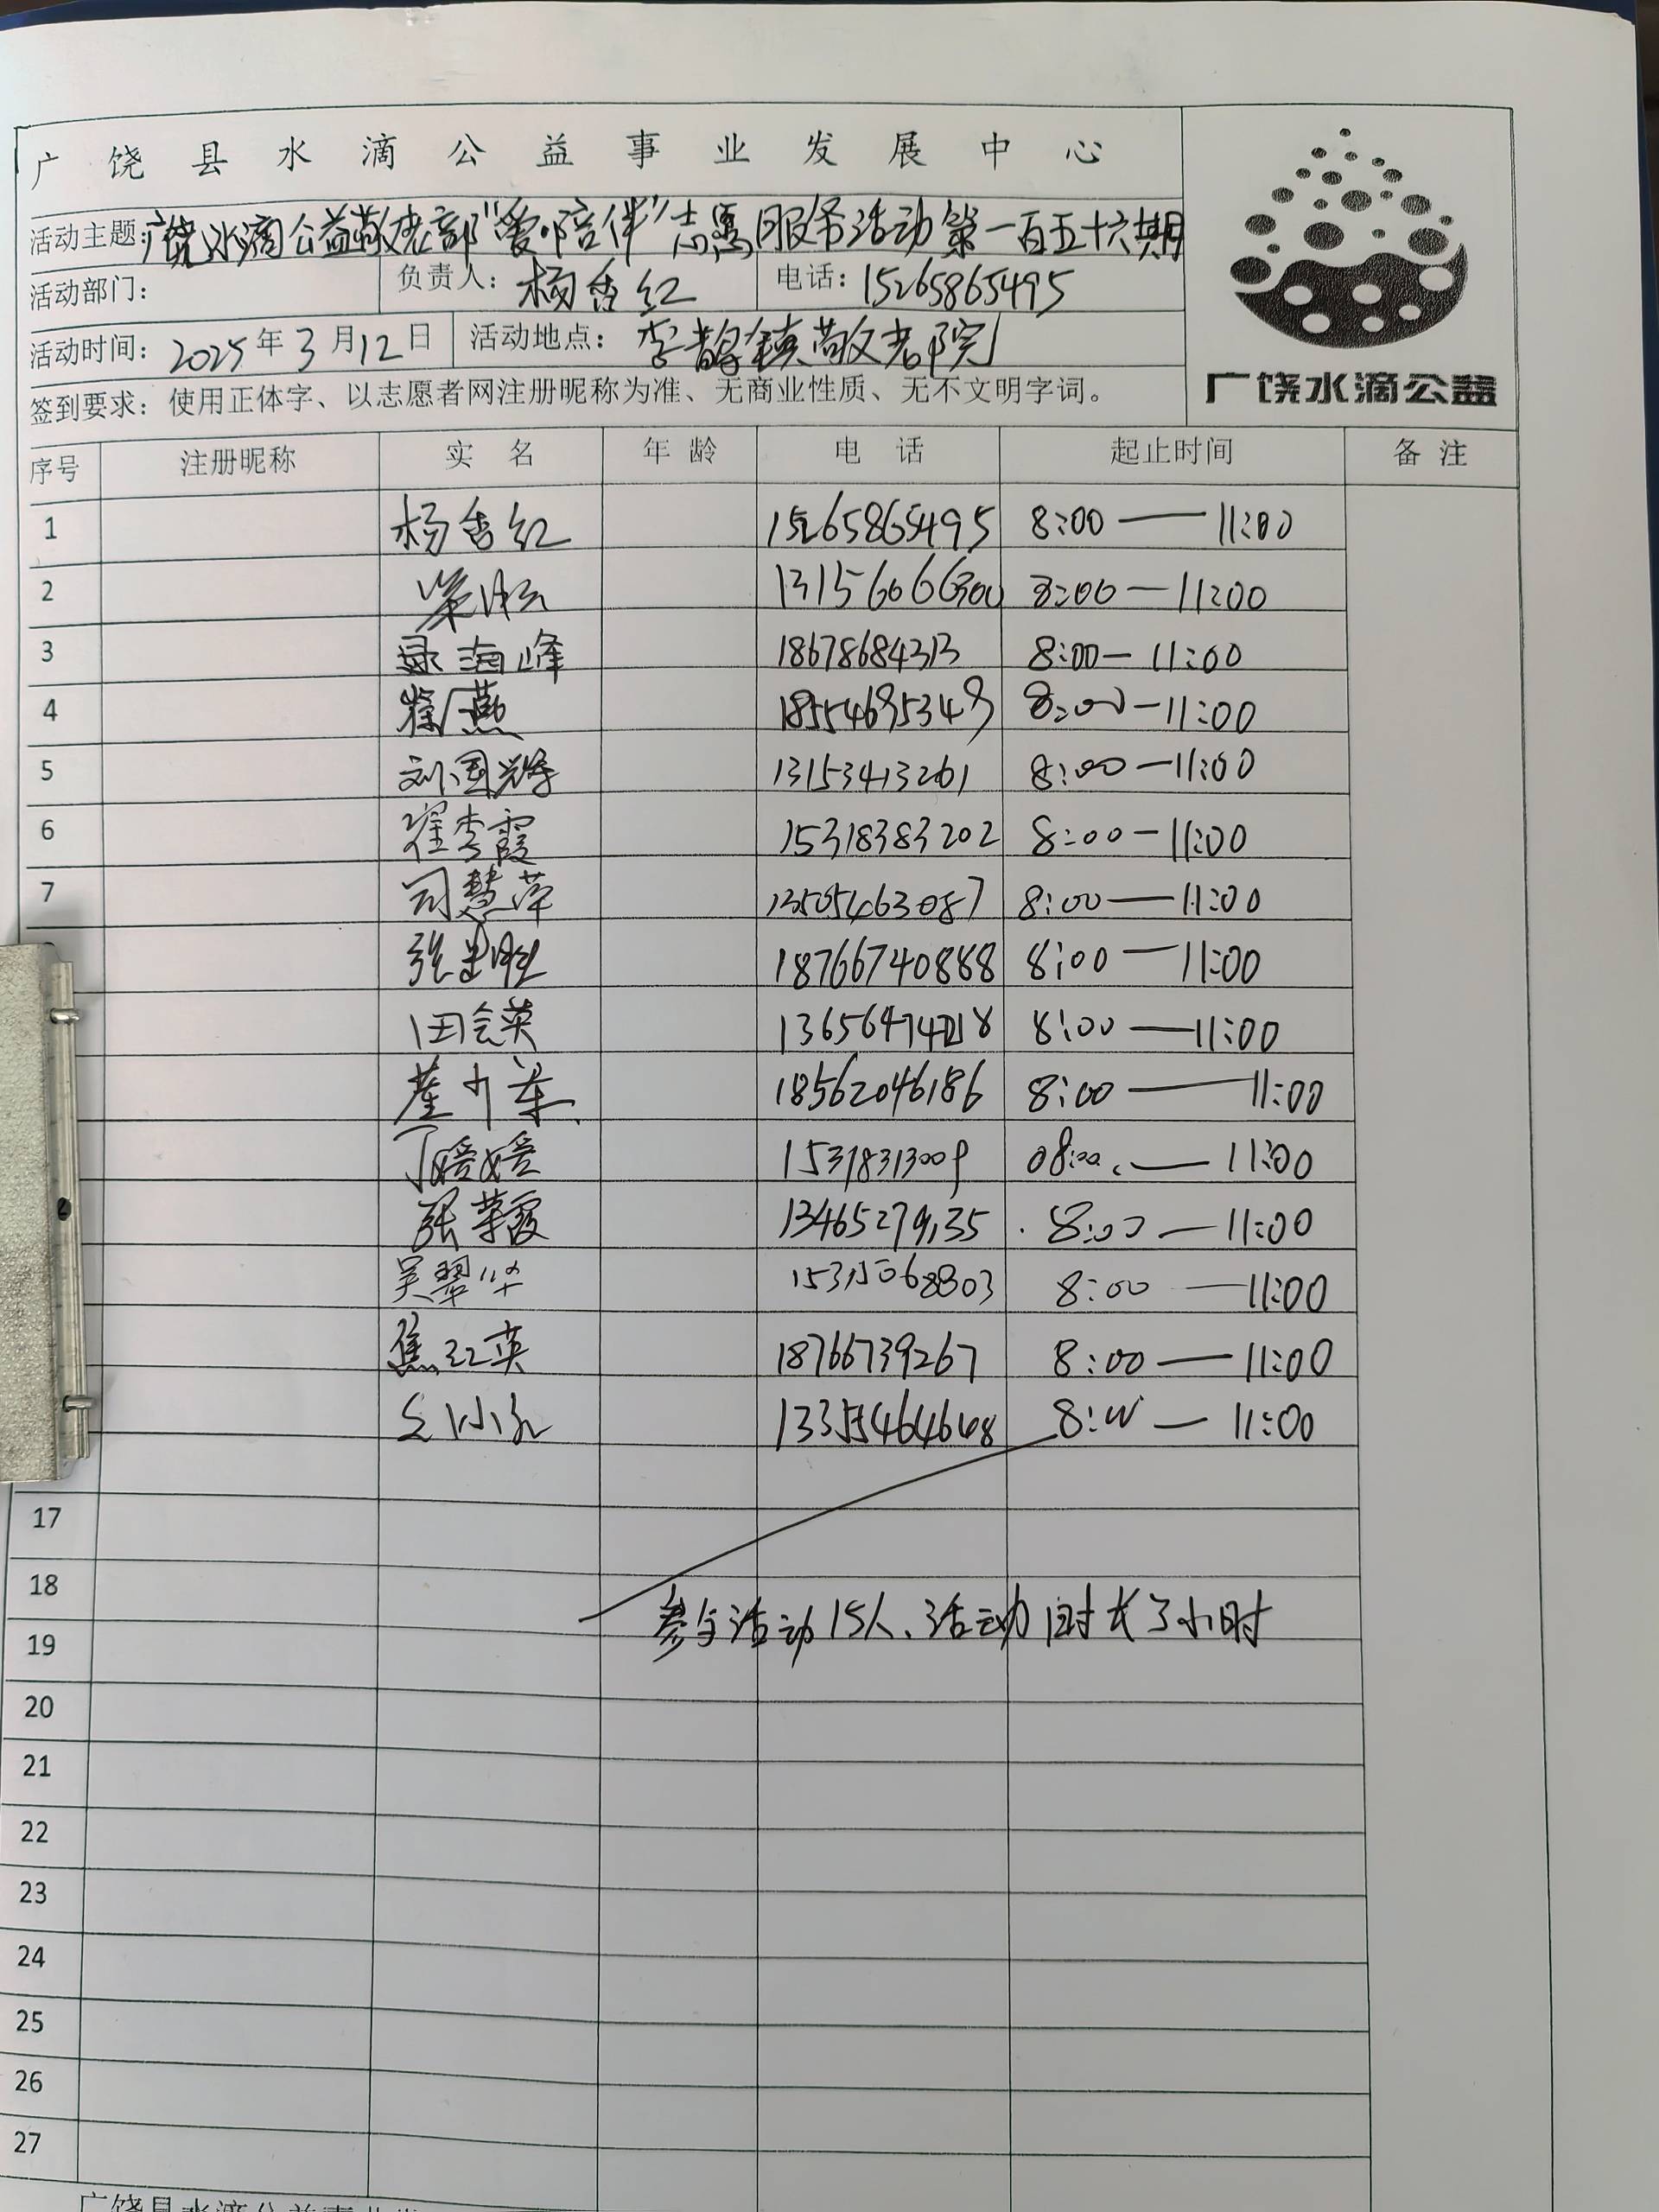 广饶县水滴公益事业发展中心
活动主题:广饶水滴公益敬老部“爱心陪伴”志愿服务活动第一百五十六期
活动部门: 负责人: 杨香红 电话: 15265865495
活动时间: 2025年3月12日 活动地点: 李鹊镇敬老院
签到要求: 使用正体字、以志愿者网注册昵称为准、无商业性质、无不文明字词。
广饶水滴公益
序号 注册昵称 实名 年龄 电话 起止时间 备注
1 杨香红 15265865495 8:00—11:00
2 8:00—11:00
3 海峰 18678684313 8:00—11:00
4 徐燕 18554695349 8:00—11:00
5 刘国辉 13153413261 8:00—11:00
6 崔秀霞 15318383202 8:00—11:00
7 司慧萍 13505463087 8:00—11:00
张建胜 18766740888 8:00—11:00
田会英 8:00—11:00
18562046186 8:00—11:00
丁媛媛 15318313009 08:00—11:00
张荣霞 13465279135 8:00—11:00
吴翠华 15315068803 8:00—11:00
焦红英 18766739267 8:00—11:00
8:00—11:00
17
18
参与活动15人、活动时长3小时
19
20
21
22
23
24
25
26
27